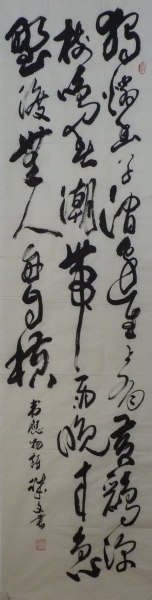 独憐幽草澗邊生上有黄鸝深
樹鳴春潮帶雨晚來急
野渡無人舟自横
韋應物詩